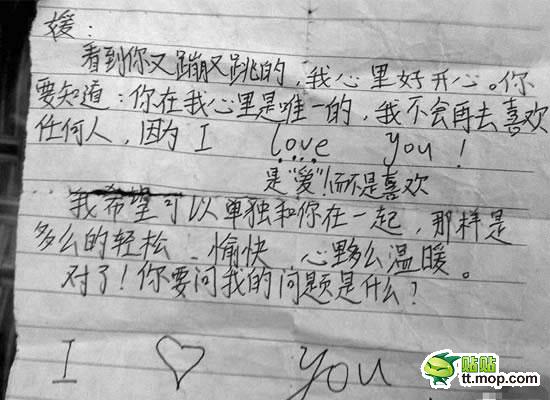 媛：
看到你又蹦又跳的，我心里好开心。你
要知道：你在我心里是唯一的，我不会再去喜欢
任何人，因为 I love you！
是“爱”！而不是喜欢
我希望可以单独和你在一起，那样是
多么的轻松、愉快 心多么温暖。
对了！你要问我的问题是什么？
I ♡ you
贴贴
tt.mop.com